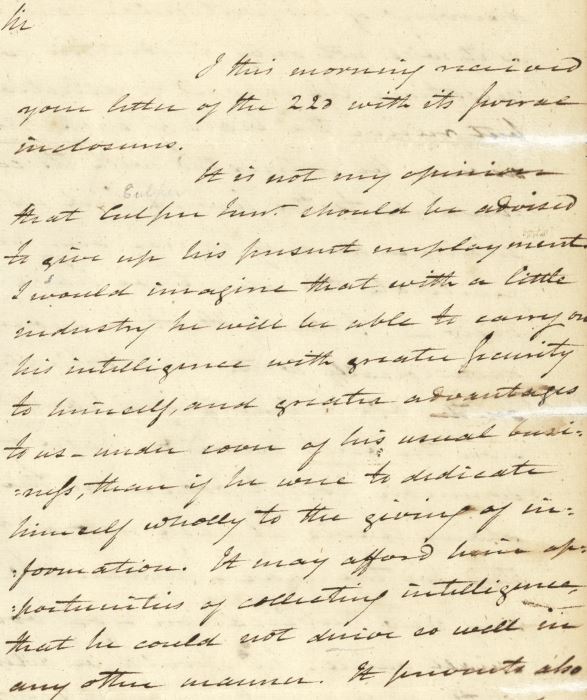 Sir
I this morning received
your letter of the 22d with its several
inclosures.
It is not my opinion
Culper
that Culper Junr. should be advised
to give up his present employment.
I would imagine that with a little
industry he will be able to carry on
his intelligence with greater security
to himself, and greater advantages
to us - under cover of his usual busi-
-ness, than if he were to dedicate
himself wholly to the giving of in-
-formation. It may afford him op-
-portunities of collecting intelligence,
that he could not derive so well in
any other manner. It prevents also